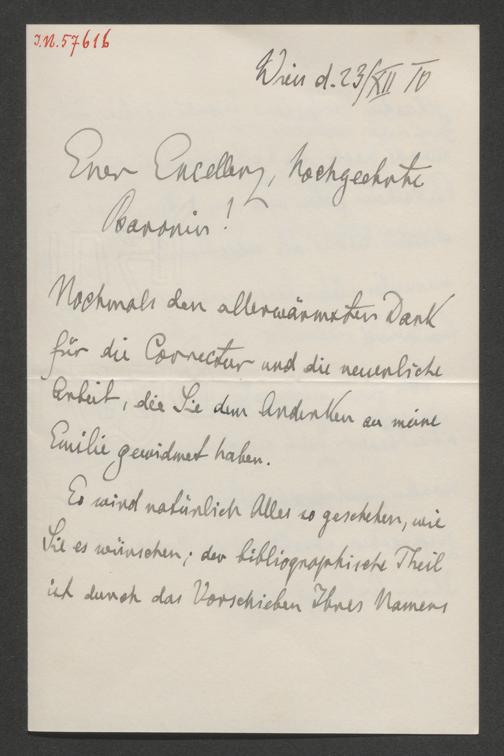 I.N. 57616
Wien d. 23/XII 10
Euer Excellenz, Hochgeehrte
Baronin!
Nochmals den allerwärmsten Dank
für die Correctur und die neuerliche
Arbeit, die Sie dem Andenken an meine
Emilie gewidmet haben.
Es wird natürlich Alles so geschehen, wie
Sie es wünschen; der bibliographische Theil
ist durch das Vorschieben Ihres Namens